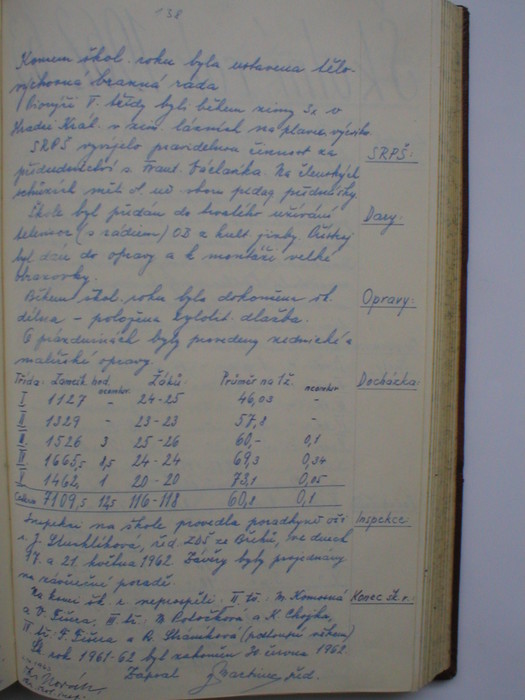 138
Koncem škol. roku byla ustavena tělo-
výchovná branná rada
Pionýři V. třídy byli během zimy 3x v
Hradci Král. v zim. lázních na plavec. výcviku.
SRPŠ:
SRPŠ vyvíjelo pravidelnou činnost za
předsednictví s. Frant. Václavíka. Na členských
schůzích měl vl. uč. sborem pedag. přednášky.
Dary:
Škole byl předán do trvalého užívání
televizor (s rádiem) OB z kult. jizby. Přístroj
byl dán do opravy a k montáži velké
obrazovky.
Opravy:
Během škol. roku byla dokončena šk.
dílna - položena xylolit. dlažba.
O prázdninách byly provedeny zednické a
malířské opravy.
Docházka:
Třída: Zamešk. hod. neomluv. Žáků: Průměr na 1 ž. neomluv.
I 1127 - 24-25 46,03 -
II 1329 - 23-23 57,8 -
III 1526 3 25-26 60,- 0,1
IV 1665,5 8,5 24-24 69,3 0,34
V 1462, 1 20-20 73,1 0,05
Celkem 7109,5 12,5 116-118 60,2 0,1
Inspekce
Inspekci na škole provedla poradkyně
s. J. řed. ZDŠ ze ve dnech
17. a 21. května 1962. Závěry byly projednány
na závěrečné poradě.
Konec šk. r.:
Na konci šk. r. neprospěli: II. tř.: M. Komorná
a V. Fišera, III. tř.: M. Potočková a K. Chojka,
IV. tř.: F. Fišera a B. Stráníková (podlomení věkem)
Šk. rok 1961-62 byl zakončen 30. června 1962.
Zapsal J. Martinec, řed.
Novák